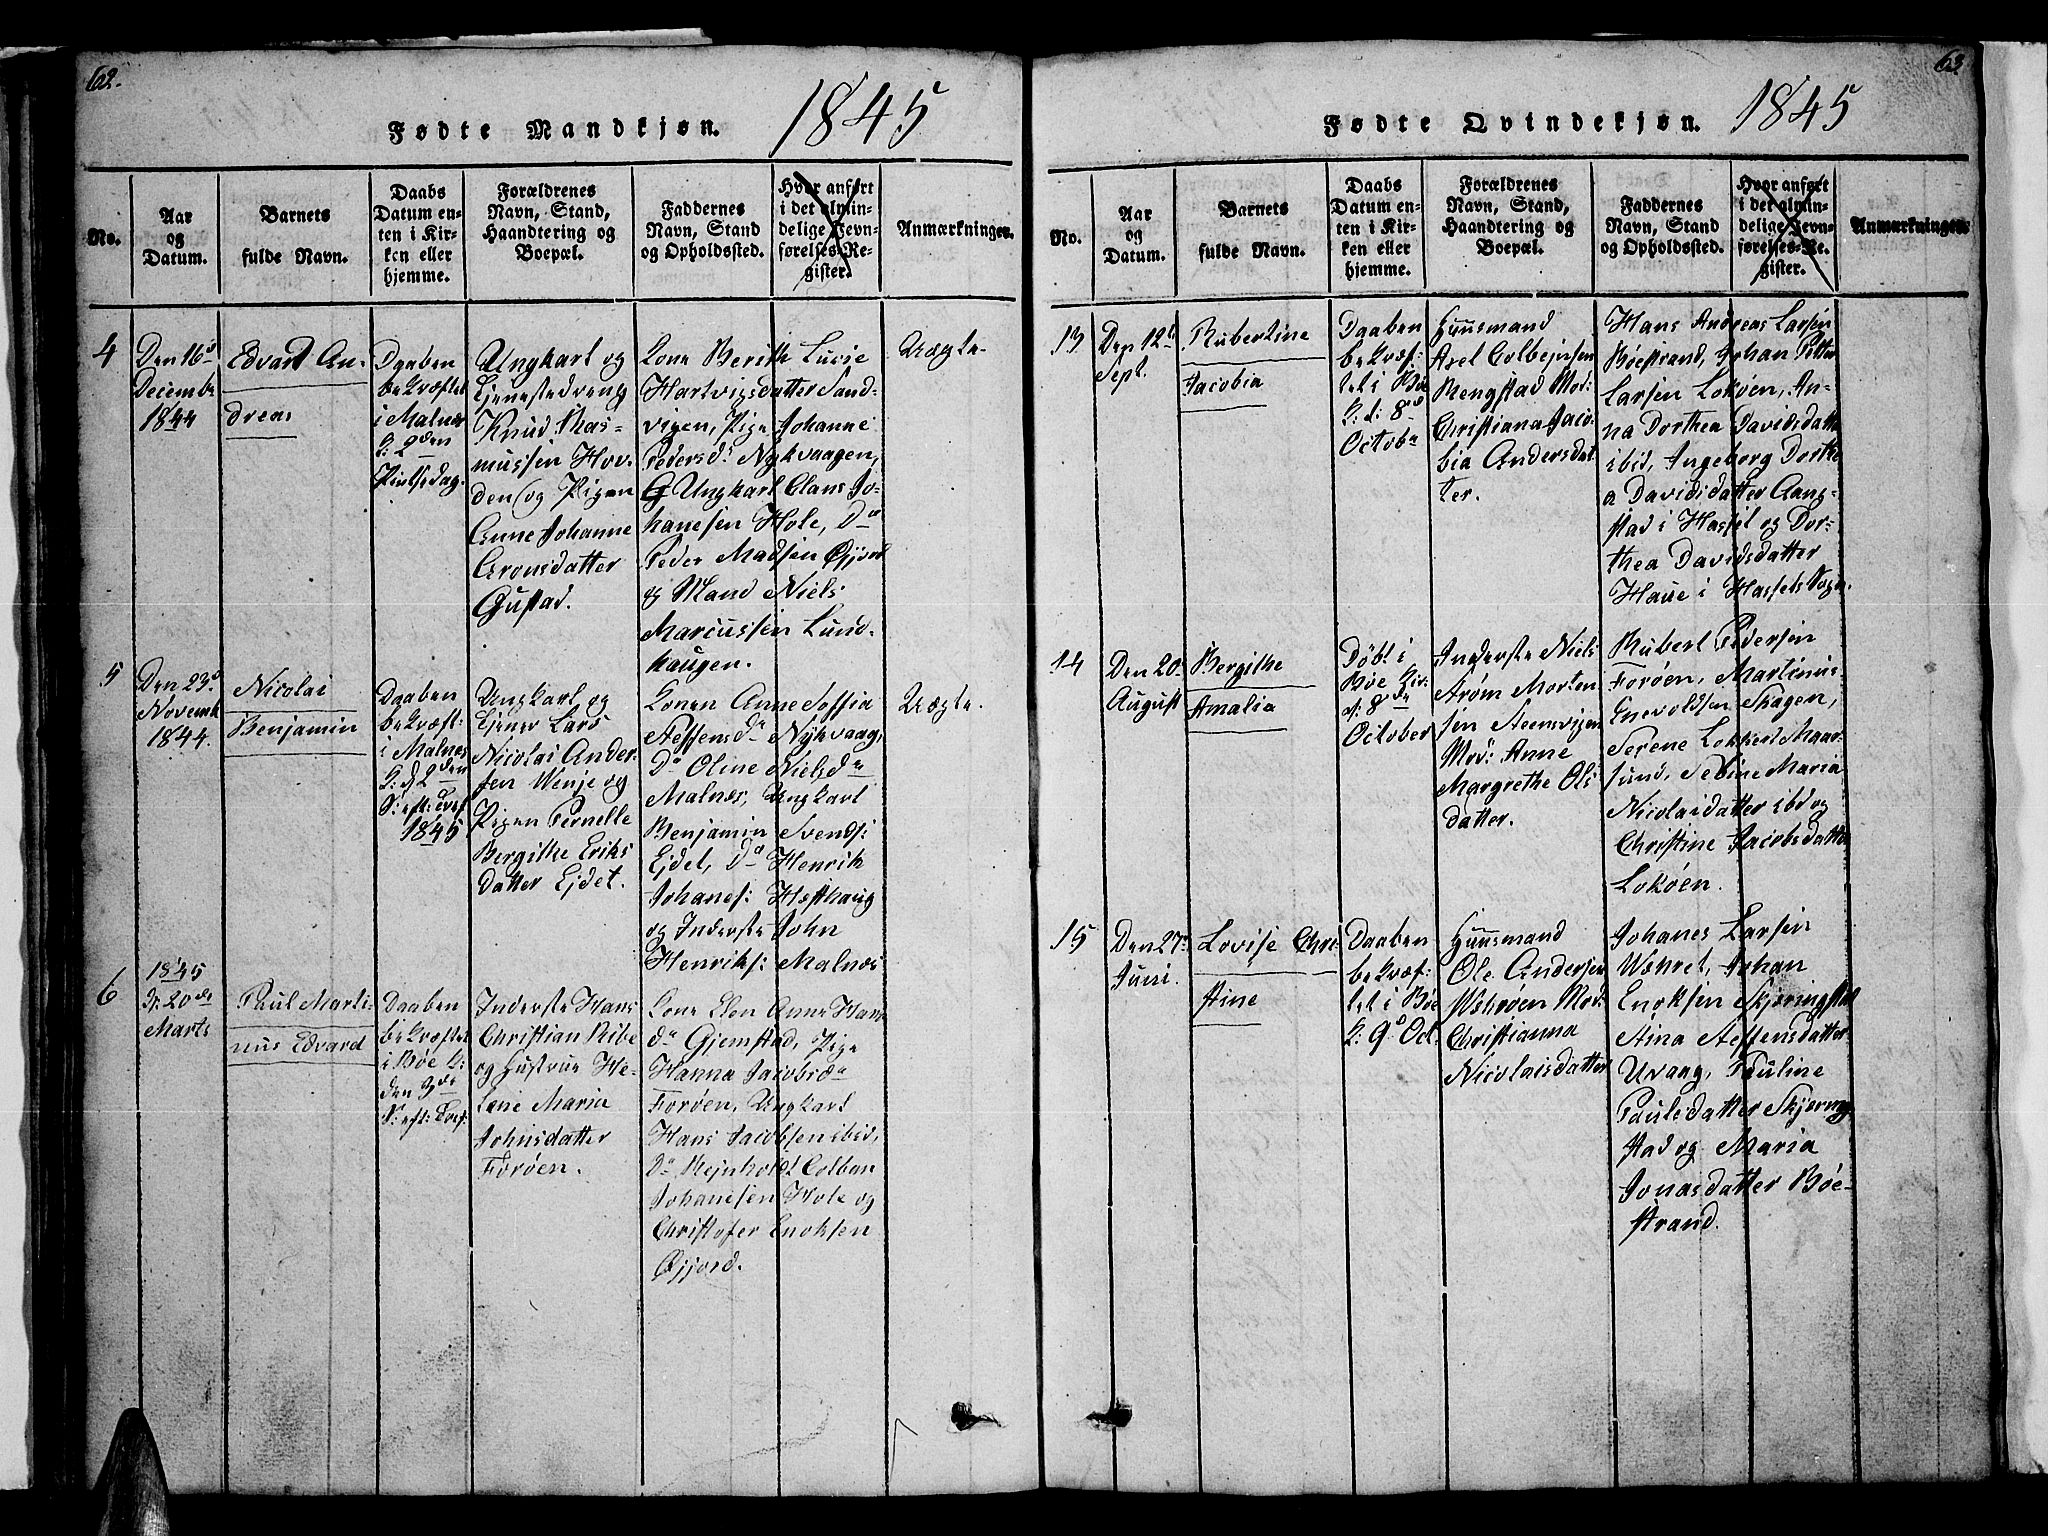 62.
Fødte Mandkjøn. 1845
No.
Aar
og
Datum.
Barnets
fulde Navn.
Daabs
Datum en-
ten i Kir-
ken eller
hjemme.
Forældrenes
Navn, Stand,
Haandtering og
Boepæl.
Faddernes
Navn, Stand
og Opholdssted.
Hvor anført
i det almin-
delige Jevn-
førelses-Re-
gister.
Anmærkninger.
4
Den 16d
Decembr
1844
Edvard An-
dreas
Daaben
bekræftet
i Malnes
K: 2den
Pintsedag.
Ungkarl og
Tjenestedreng
Knud Ras-
mussen Hov-
den og Pigen
Anne Johanne
Aronsdatter
Gustad.
Kone Berith Lucie
Hartvigsdatter Sand-
vigen, Pige Johanne
Pedersd: Nykvaagen,
Ungkarl Clans Jo-
hanesen Hole, Do
Peder Madsen Øjjord
og Mand Niels
Marcussen Lund-
haugen.
Uægte.
5
Den 23d
Novemb
1844.
Nicolai
Benjamin
Daaben
bekræft-
i Malnes
K: d. 2den
S: eft: Tref
1845
Ungkarl og
Tjener Lars
Nicolai Ander-
sen Wenje og
Pigen Pernelle
Bergithe Eriks
datter Ejdet.
Konen Anne Soffia
Steffensda Nykvaag,
Do Oline Nielsda
Malnes, Ungkarl
Benjamin Svends:
Ejdet, Do Henrik
Johanes: Hæsthaug
og Inderste John
Henriks: Malnes
Uægte.
6
1845
D. 20de
Marts
Paul Marti-
nus Edvard
Daaben
bekræftet
i Bøe K:
den 3de
S: eft: Tref:
Inderste Hans
Christian Ribe
og Hustrue He-
lene Maria
Johnsdatter
Forøen.
Kone Elen Anna Hans
da Gjemstad, Pige
Hanna Jacobsda
Forøen, Ungkarl
Hans Jacobsen ibid,
Do Rejnholdt Colban
Johanesen Hole og
Christofer Enoksen
Øjjord.
63
Fødte Qvindekjøn. 1845
No.
Aar
og
Datum.
Barnets
fulde Navn.
Daabs
Datum en-
ten i Kir-
ken eller
hjemme.
Forældrenes
Navn, Stand,
Haandtering og
Boepæl.
Faddernes
Navn, Stand
og Opholdssted.
Hvor anført
i det almin-
delige Jevn-
førelses-Re-
gister.
Anmærkninger.
13
Den 12te
Sept.
Rubertine
Jacobia
Daaben
bekræf-
tet i Bøe
K: d: 8d
Octobr
Huusmand
Axel Colbejnsen
Rengstad Mod:
Christiana Jaco-
bia Andersdat-
ter.
Hans Andreas Larsen
Bøestrand, Johan Petter
Larsen Lokøen, An-
na Dorthea Davidsdatter
ibid, Ingeborg Dorthe
a Davidsdatter Aang-
stad i Hassel og Dor-
thea Davidsdatter
Haue i Hassels Sogn.
14
Den 20.
August
Bergithe
Amalia
Døbt i
Bøe Kir:
d: 8de
October
Inderste Niels
Strøm Morten
sen Steensvigen
Mod: Anne
Margrethe Ols
datter.
Rubert Pedersen
Forøen, Martinus
Enevoldsen Skagen,
Serene Lokkert Maar-
sund, Sebine Maria
Nicolaidatter ibd og
Christine Jacobsdatter
Lokøen.
15
Den 27de
Juni.
Lovise Chri-
stine
Daaben
bekræf-
tet i Bøe
K: 9d Oct.
Huusmand
Ole Andersen
Mod:
Christianna
Nicolaisdatter
Johanes Larsen
Johan
Enoksen Skjeringstad
Stina Steffensdatter
Uvaag, Pauline
Paulsdatter Skjering-
stad og Maria
Jonasdatter Bøe-
strand.